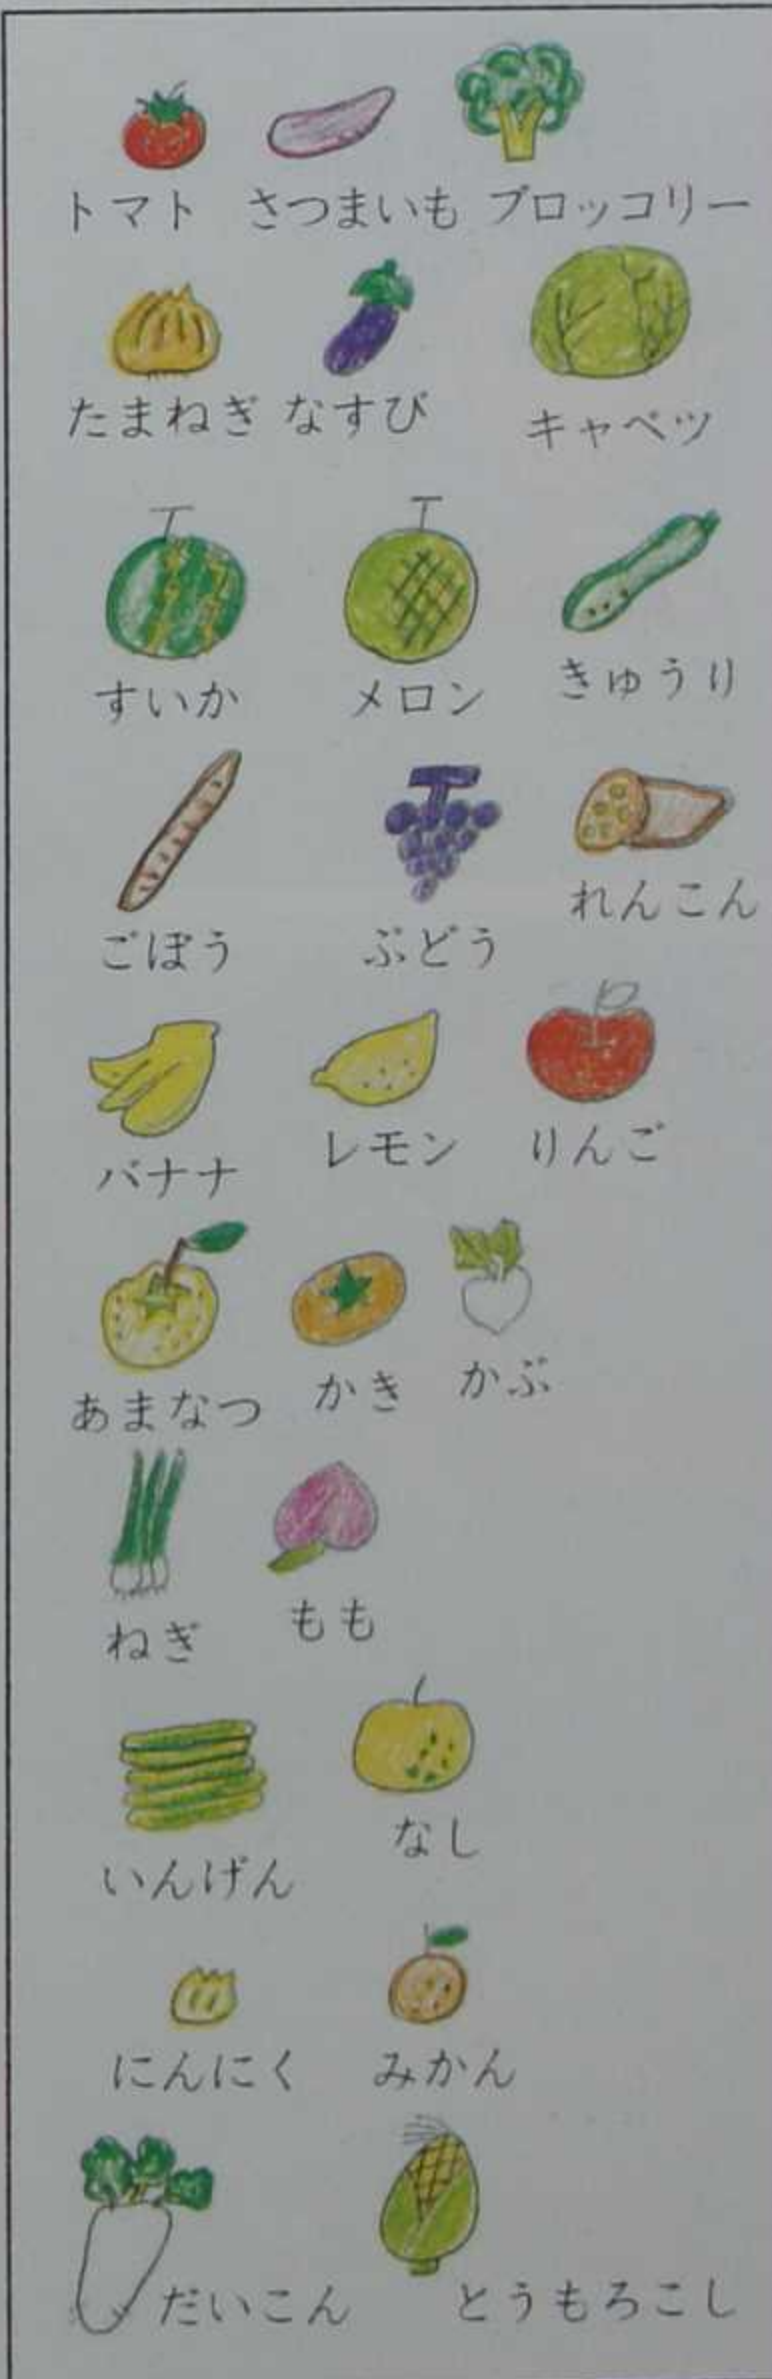 トマト さつまいも ブロッコリー
たまねぎ なすび キャベツ
すいか メロン きゅうり
ごぼう ぶどう れんこん
バナナ レモン りんご
あまなつ かき かぶ
ねぎ もも
いんげん なし
にんにく みかん
だいこん とうもろこし